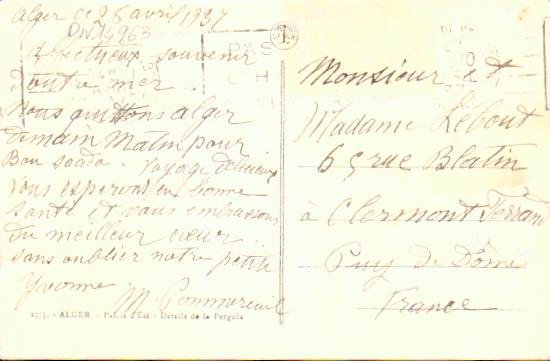 Alger ce 26 avril 1937
DIV14963
affectueux souvenir
d'outre mer..
Nous quittons alger
demain Matin pour
Bou Saada. Voyage délicieux
Vous esperons en bonne
santé et vous embrassons
du meilleur cœur..
sans oublier notre petite
Yvonne.
M. Commereuil
215. - ALGER - Palais d'Été - Details de la Pergola
Monsieur et
Madame Lebout
65 rue Blatin
à Clermont Ferrand
Puy de Dôme
France